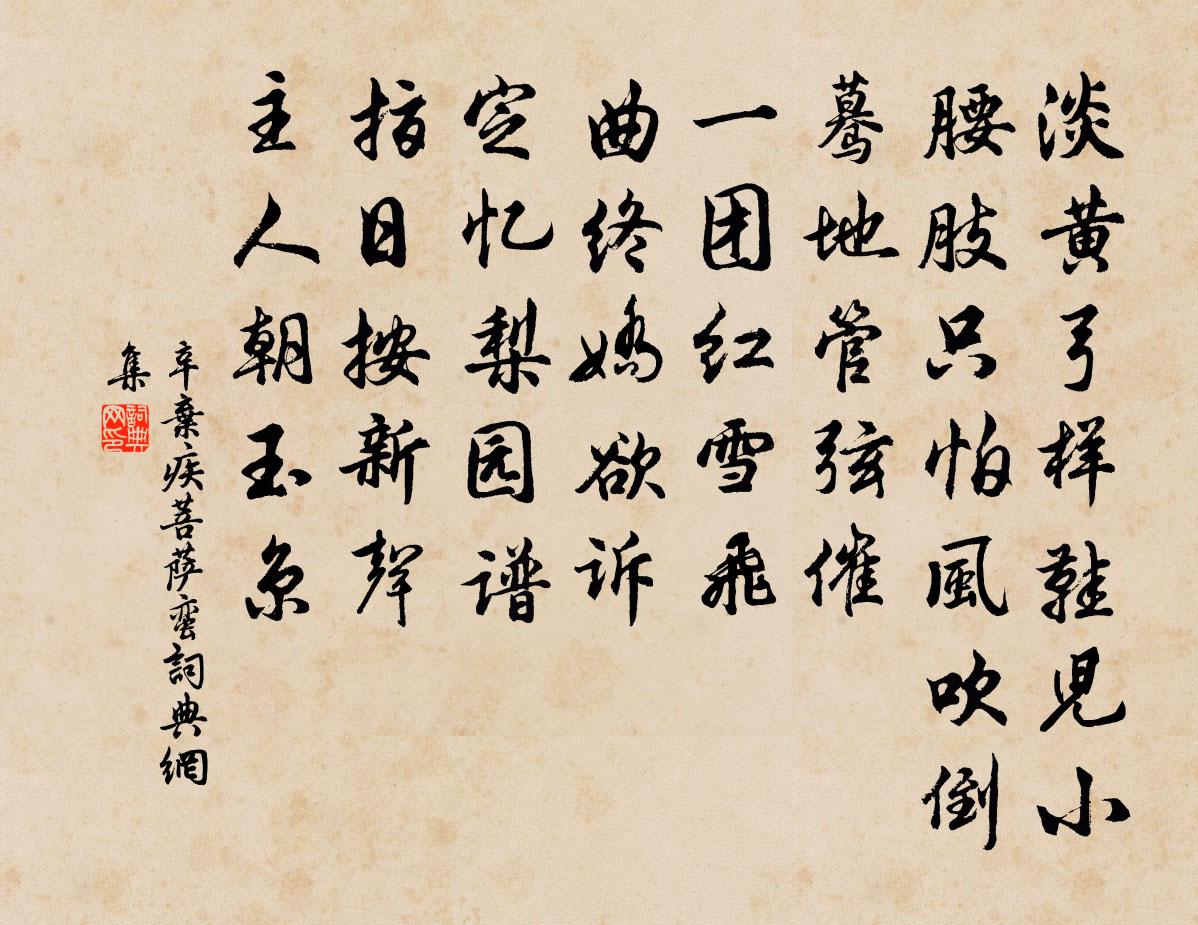 淡黄弓样鞋儿小
腰肢只怕風吹倒
蓦地管弦催
一团红雪飛
曲终嬌欲诉
定忆梨园谱
指日按新聲
主人朝玉京
辛棄疾菩萨蛮詞典網
集
詞典
网印